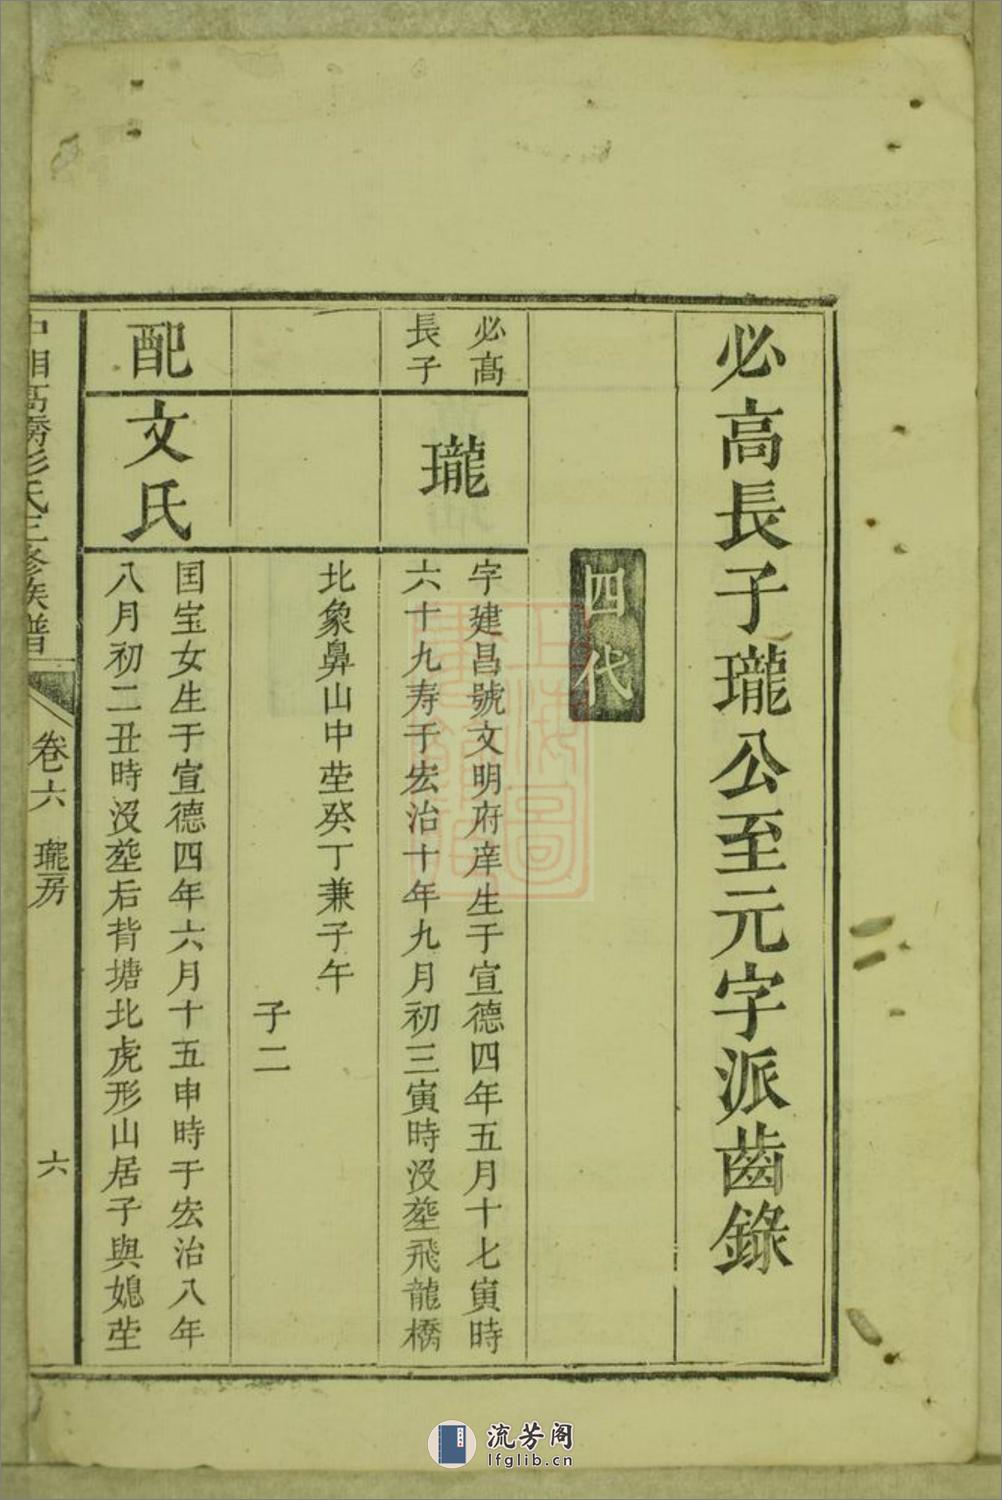 必高長子瓏公至元字派齒錄
四代
必高
長子
瓏
字建昌號文明府庠生于宣德四年五月十七寅時
六十九寿于宏治十年九月初三寅時沒塟飛龍橋
北象鼻山中茔癸丁兼子午
子二
配
文氏
国宝女生于宣德四年六月十五申時于宏治八年
八月初二丑時沒塟后背塘北虎形山居子與媳茔
中湘高橋彭氏三修族譜
卷六
瓏房
六
流芳阁
lfglib.cn